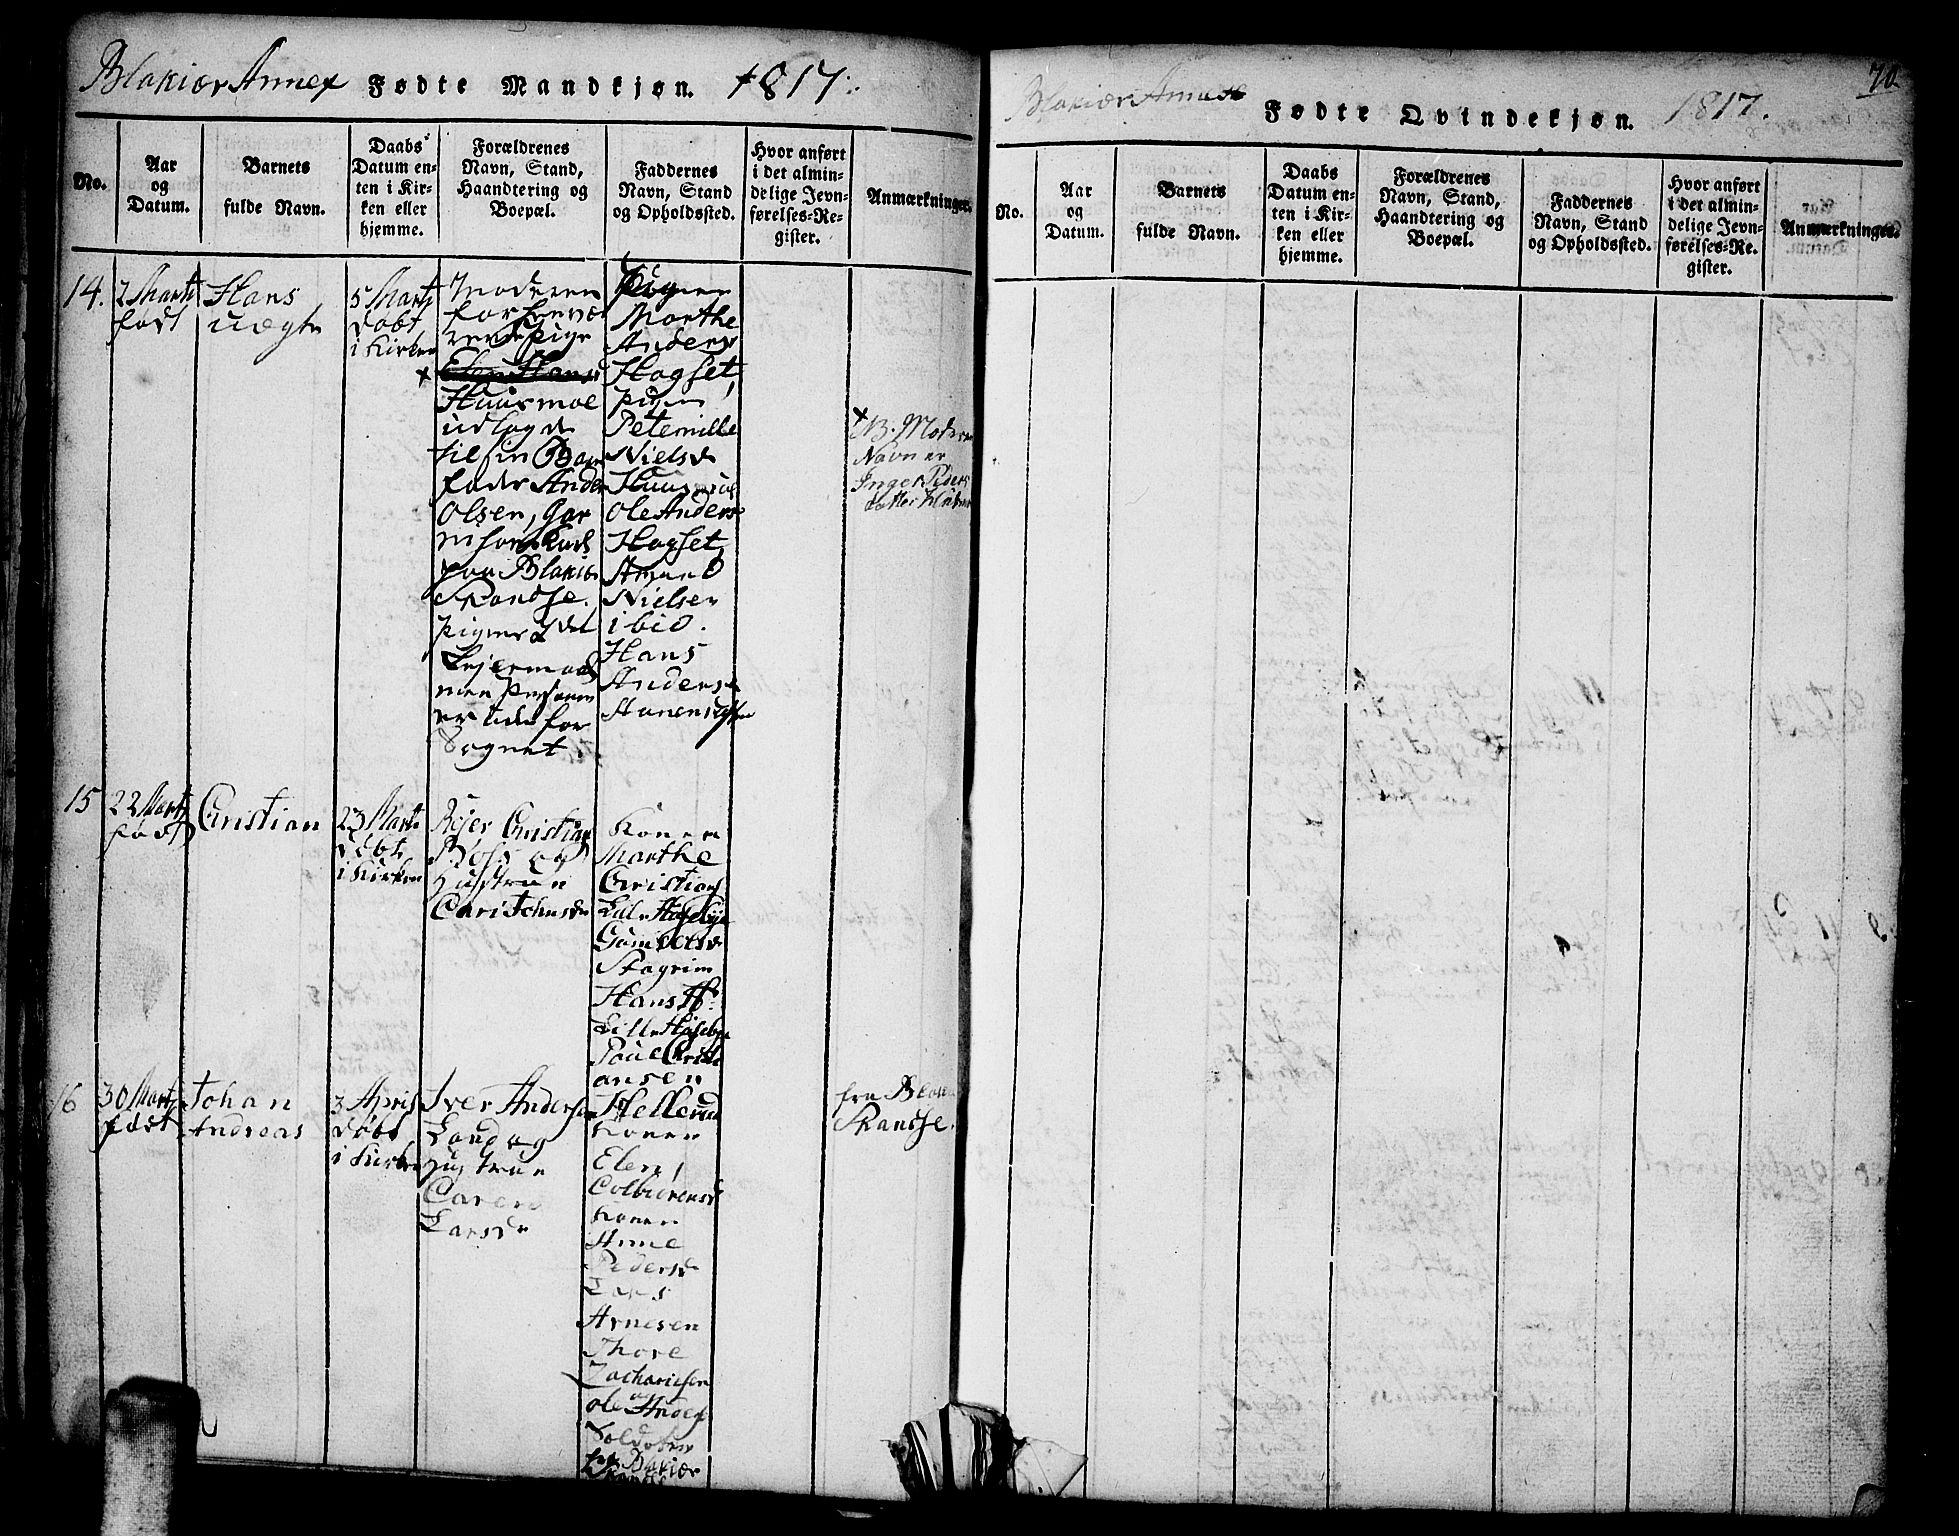 Blakiær Annex Fødte Mandkjøn. 1817.
No.
Aar
og
Datum.
Barnets
fulde Navn.
Daabs
Datum en-
ten i Kir-
ken eller
hjemme.
Forældrenes
Navn, Stand,
Haandtering og
Boepæl.
Faddernes
Navn, Stand
og Opholdssted.
Hvor anført
i det almin-
delige Jevn-
førelses-Re-
gister.
Anmærkninger.
14.
2 Marti
født
Hans
uægte
5 Marts
døbt
i Kirken
Moderen
Pige
Huusmoe
udlagde
til sin Barn
fader Anders
Olsen, Gar
paa Blakiær
Skandse.
Pigens 2det
Lejermaal
er uden for
Sognet
Pigen
Marthe
Andersd
Hagset
Pigen
Peternille
Nielsd
Ole Anders
Hagset
Amund
Nielsen
ibid.
Hans
Anders
x
NB. Moderen
Navn er
Inger Peders
datter
15
22 Marts
født
Christian
23 Marts
døbt
i Kirken
Rejer Christian
og
Hustrue
Cari Johnsd
Konen
Marthe
Christians
Lille
Stagrim
Hans H
Lille
Poul Christi
ansen
16
30 Marts
født
Johan
Andreas
3 April
døbt
i Kirken
Iver Andersen
Lund og
Hustrue
Caren
Larsd
Hellerud
Konen
Elen
Colbiørensd
Konen
Anne
Pedersd
Lars
Arnesen
Thore
Zachariesen
og
Ole Anders
Soldater
fra Blakiær
Skandse
fra Blakiær
Skandse.
Blakiær Annex Fødte Qvindekjøn. 1817.
70
No.
Aar
og
Datum.
Barnets
fulde Navn.
Daabs
Datum en-
ten i Kir-
ken eller
hjemme.
Forældrenes
Navn, Stand,
Haandtering og
Boepæl.
Faddernes
Navn, Stand
og Opholdssted.
Hvor anført
i det almin-
delige Jevn-
førelses-Re-
gister.
Anmærkninger.